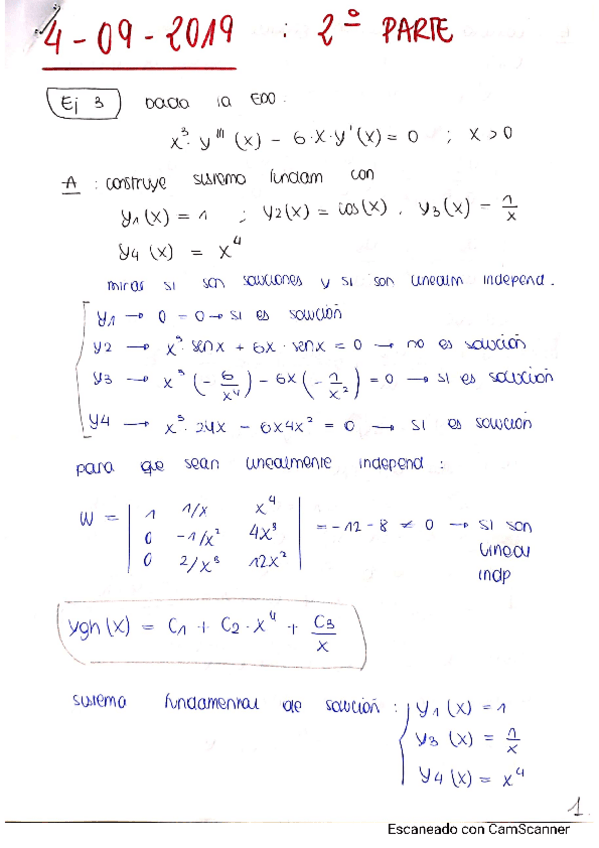 4-09-2019 : 2º PARTE
Ej 3 Dada la EDO.
x³·y'''(x) - 6·x·y'(x) = 0 ; x>0
A : construye sistema fundam con
y1(x) = 1 ; y2(x) = cos(x) . y3(x) - 1/x
y4(x) = x⁴
miras si son soluciones y si son linealm independ.
y1 → 0 = 0 → si es solución
y2 → x³·senx + 6x·senx = 0 → no es solución
y3 → x³(-6/x⁴) - 6x(-1/x²) = 0 → si es solución
y4 → x³·24x - 6x4x² = 0 → si es solución
para que sean linealmente independ :
W = | 1 1/x x⁴ |
| 0 -1/x² 4x³ | = -12-8 ≠ 0 → si son
| 0 2/x³ 12x² | lineal
indp
ygh(x) = C1 + C2·x⁴ + C3/x
sistema fundamental de solución : y1(x) = 1
y3(x) = 1/x
y4(x) = x⁴
1.
Escaneado con CamScanner